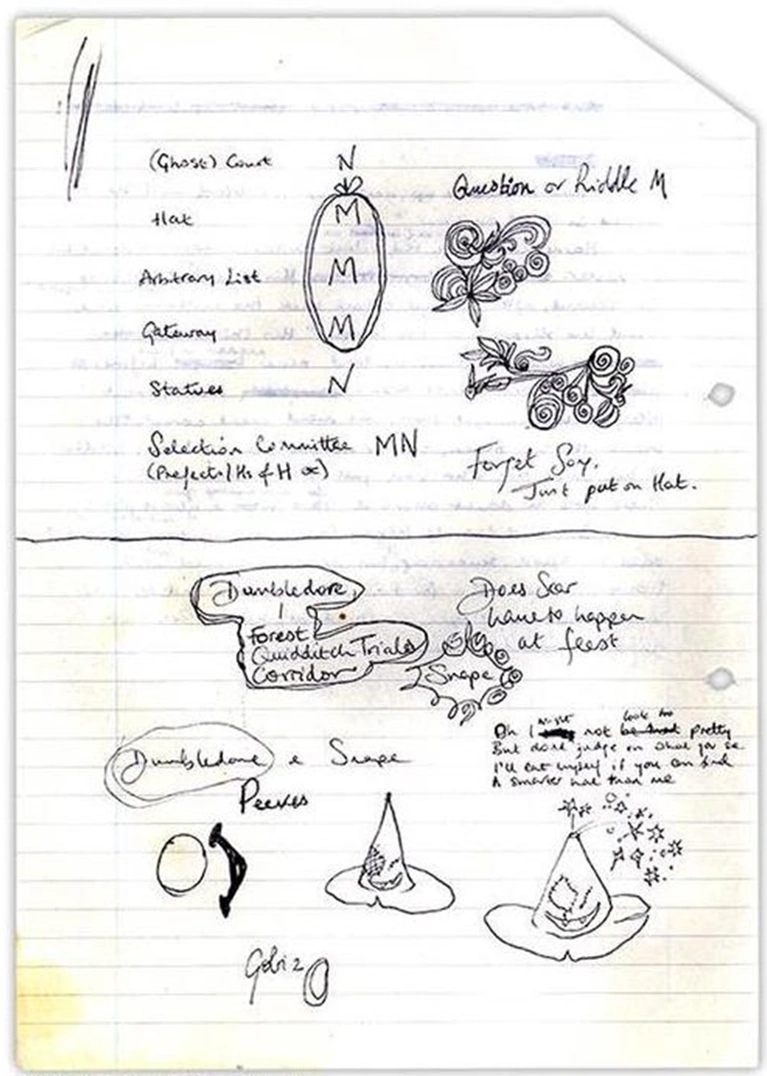 (Ghost) Court N
Hat M
Arbitrary List M
Gateway M
Statues N
Selection Committee MN
(Prefects/Hs of H
Question or Riddle M
Forget Say.
Just put on Hat.
Dumbledore,
Forest
Quidditch Trials
Corridor
Snape
Does Scar
have to happen
at feast
Dumbledore & Snape
Peeves
Oh I might not look so pretty
But dont judge on what you see
I'll eat myself if you can find
A smarter hat than me